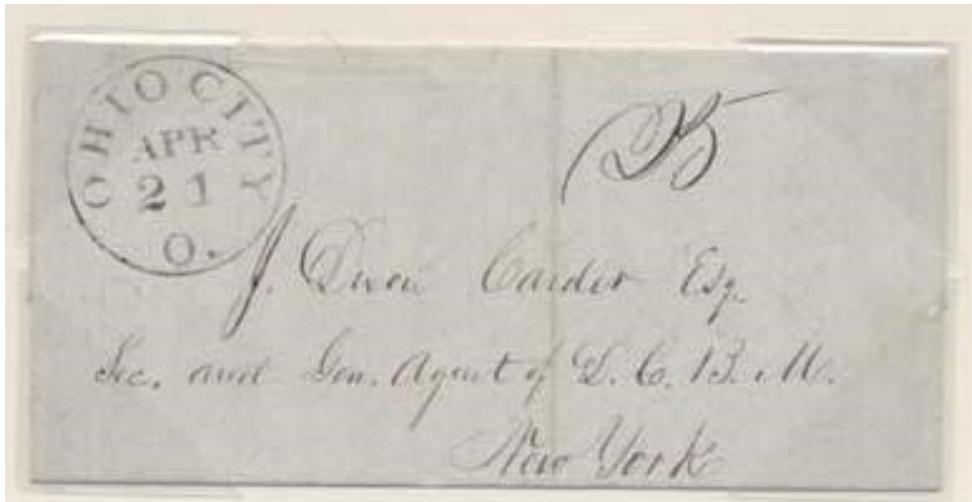 OHIO CITY
APR
21
O.
25
J. Dwen Carder Esq.
Sec. and Gen. Agent of D. C. B. M.
New York